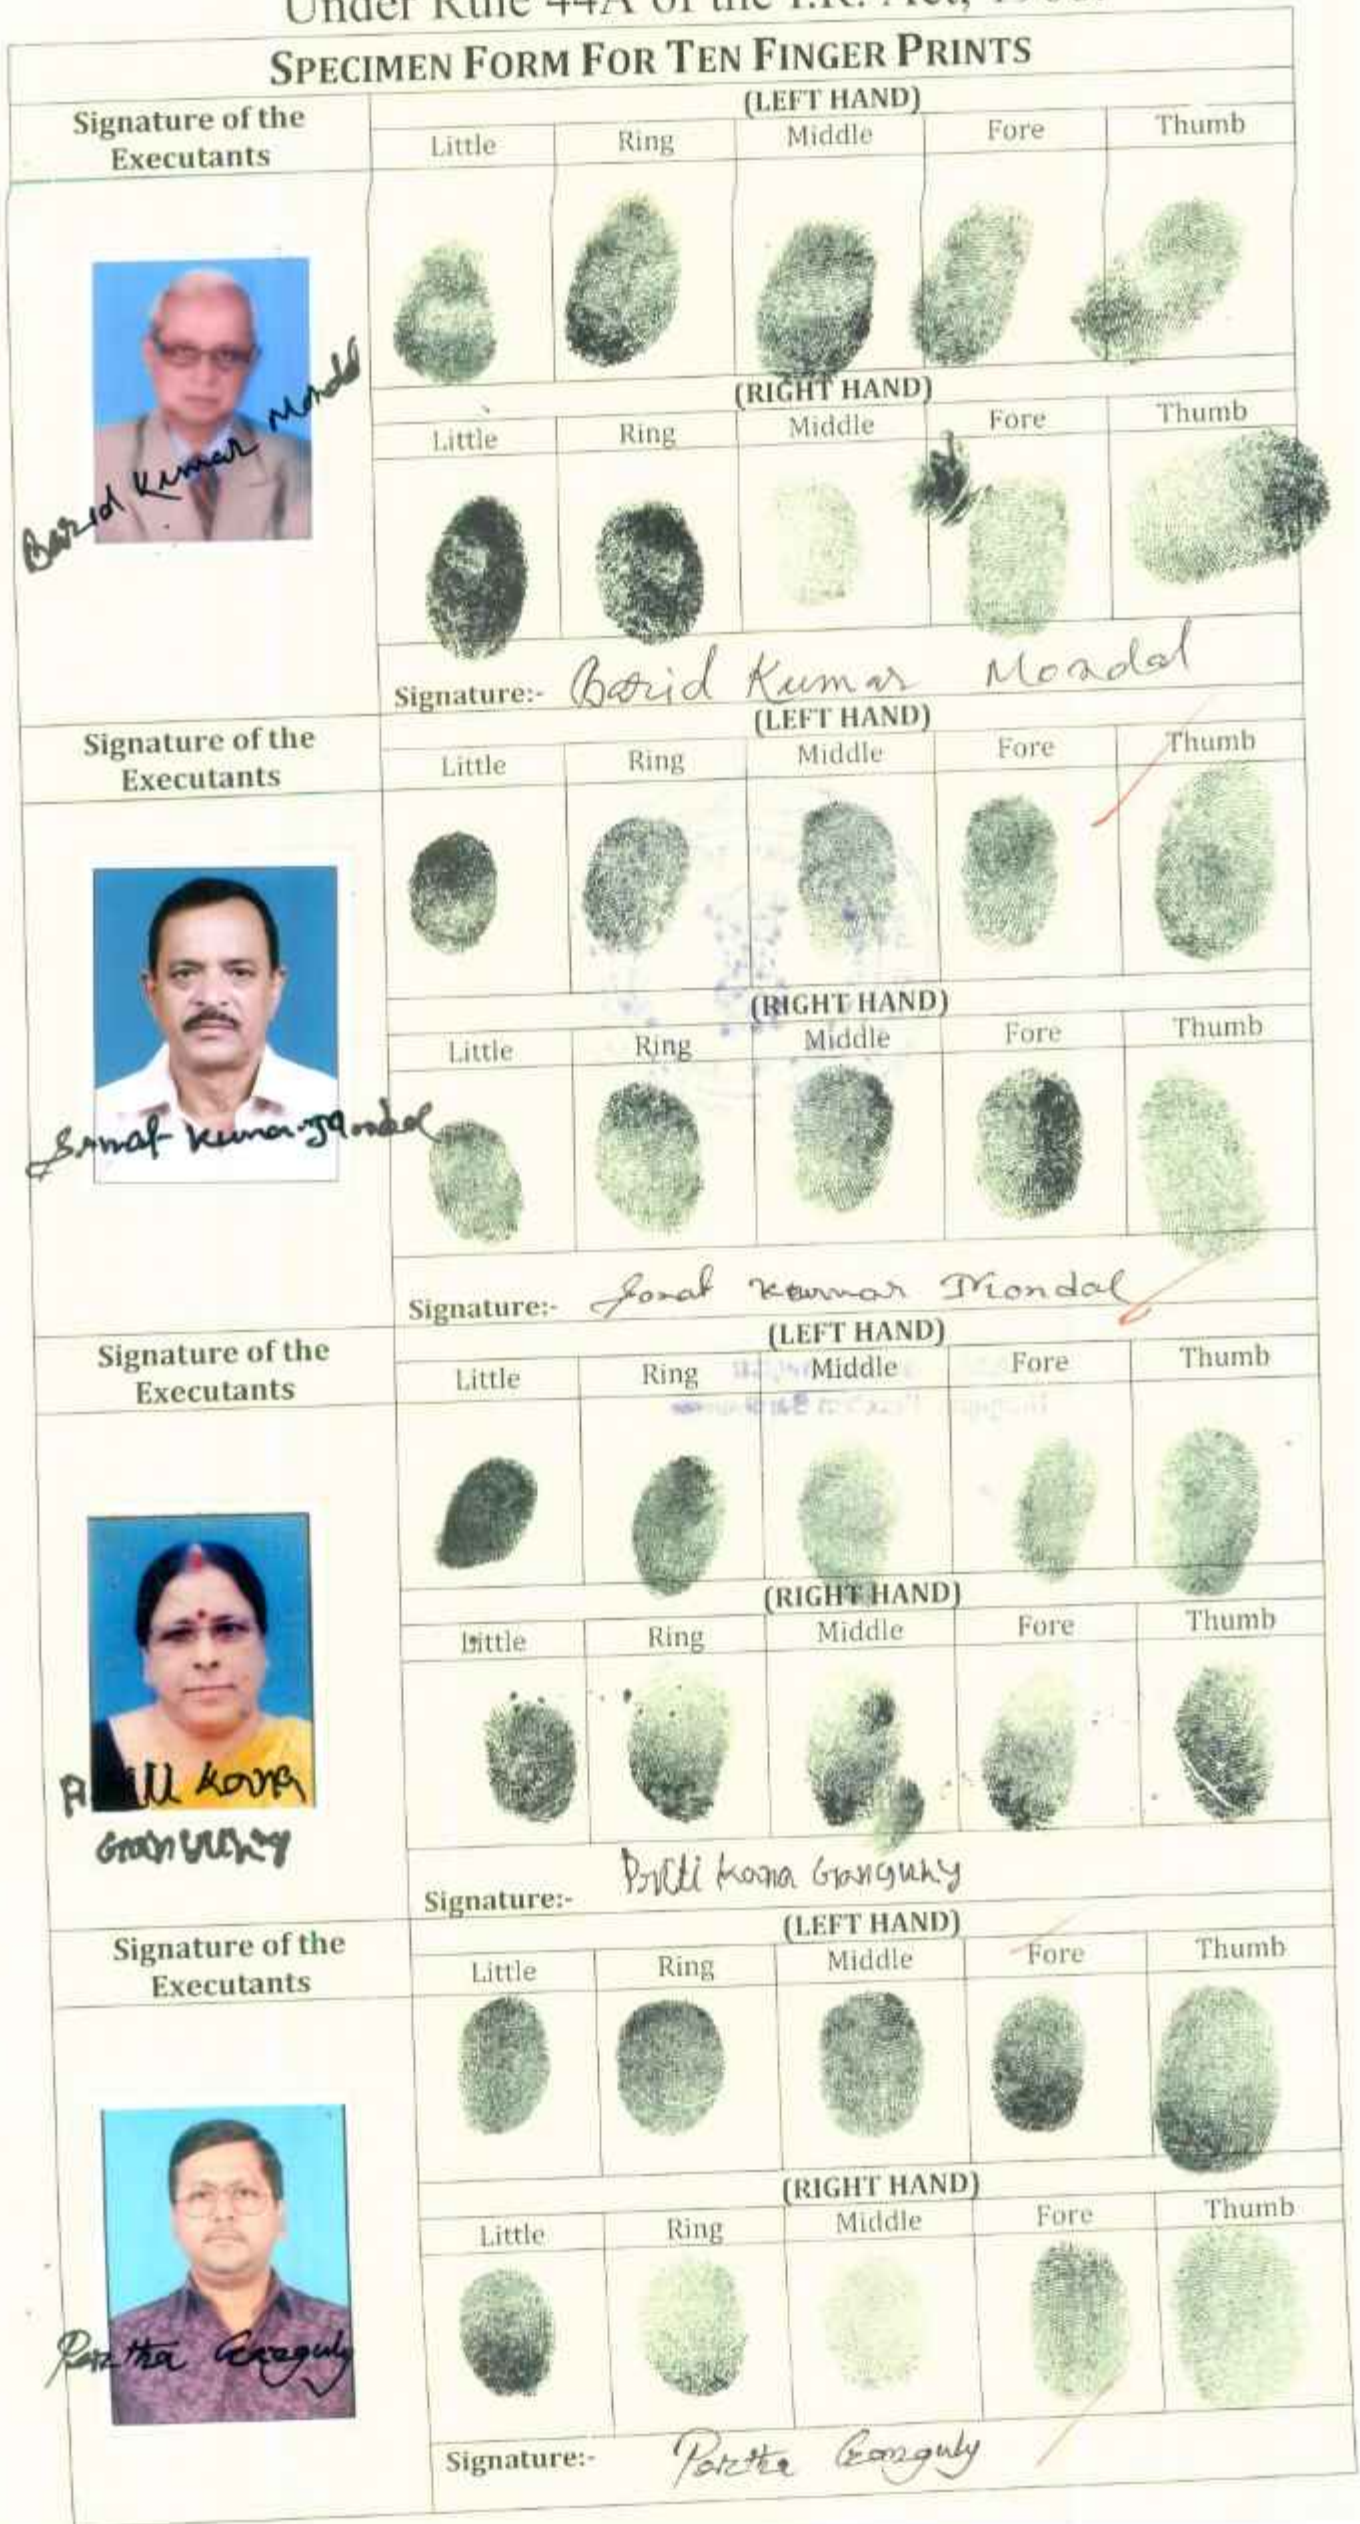 Under Rule 44A of the I.R. Act,
SPECIMEN FORM FOR TEN FINGER PRINTS
Signature of the Executants
(LEFT HAND)
Little Ring Middle Fore Thumb
Barid Kumar Mondal
(RIGHT HAND)
Little Ring Middle Fore Thumb
Signature:- Barid Kumar Mondal
Signature of the Executants
(LEFT HAND)
Little Ring Middle Fore Thumb
(RIGHT HAND)
Little Ring Middle Fore Thumb
Kumar Mondal
Signature:- Kumar Mondal
Signature of the Executants
(LEFT HAND)
Little Ring Middle Fore Thumb
(RIGHT HAND)
Little Ring Middle Fore Thumb
Kana
Signature:- Priti Kana Ganguly
Signature of the Executants
(LEFT HAND)
Little Ring Middle Fore Thumb
(RIGHT HAND)
Little Ring Middle Fore Thumb
Partha Ganguly
Signature:- Partha Ganguly